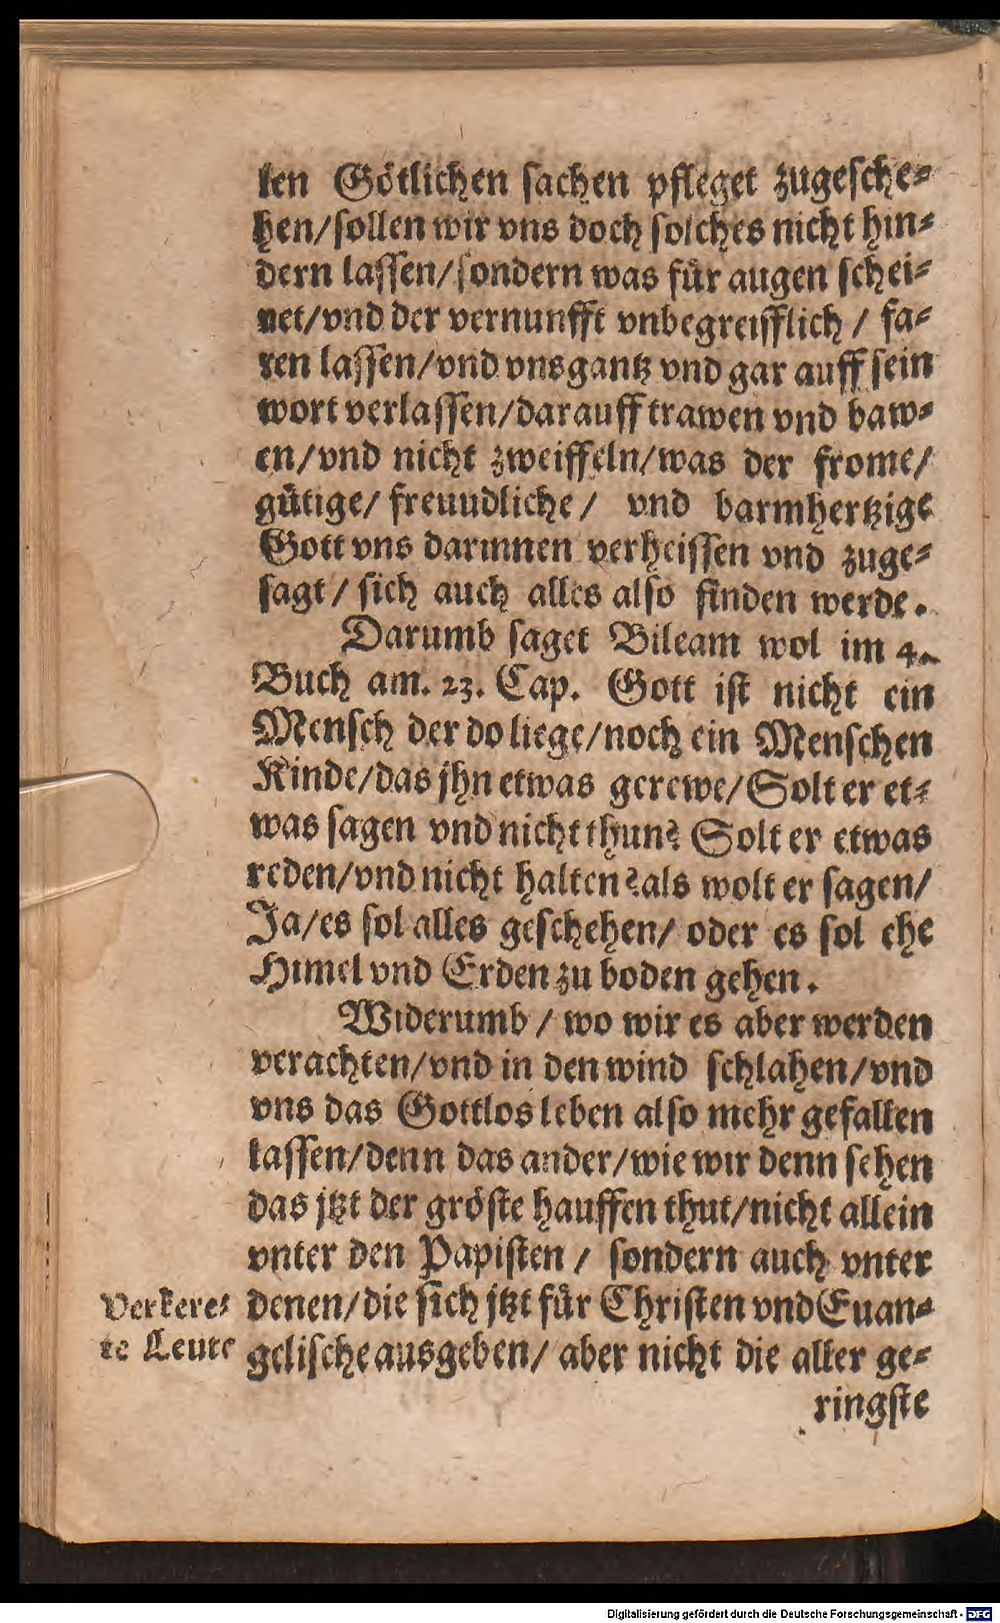 len Götlichen sachen pfleget zugesche⸗
hen/sollen wir vns doch solches nicht hin⸗
dern lassen/sondern was für augen schei⸗
net/vnd der vernunfft vnbegreifflich / fa⸗
ren lassen/vnd vns gantz vnd gar auff sein
wort verlassen/darauff trawen vnd baw⸗
en/vnd nicht zweiffeln/was der frome/
gütige/ freuudliche/ vnd barmhertzige
Gott vns darinnen verheissen vnd zuge⸗
sagt/ sich auch alles also finden werde.
Darumb saget Bileam wol im 4.
Buch am. 23. Cap. Gott ist nicht ein
Mensch der do liege/noch ein Menschen
Kinde/das jhn etwas gerewe/Solt er et⸗
was sagen vnd nicht thun? Solt er etwas
reden/vnd nicht halten? als wolt er sagen/
Ja/es sol alles geschehen/ oder es sol ehe
Himel vnd Erden zu boden gehen.
Widerumb / wo wir es aber werden
verachten/vnd in den wind schlahen/vnd
vns das Gottlos leben also mehr gefallen
lassen/denn das ander/wie wir denn sehen
das jtzt der gröste hauffen thut/nicht allein
vnter den Papisten / sondern auch vnter
denen/die sich jtzt für Christen vnd Euan⸗
gelische ausgeben/ aber nicht die aller ge⸗
ringste
Verkere⸗
te Leute
Digitalisierung gefördert durch die Deutsche Forschungsgemeinschaft - DFG